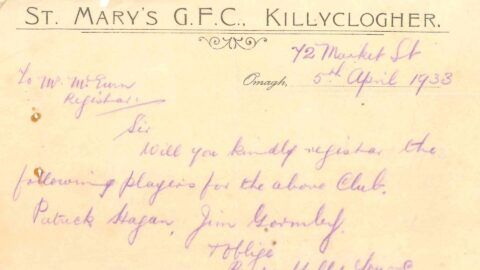 ST. MARY'S G.F.C., KILLYCLOGHER.
72 Market St
Omagh, 5th April 1933
To Mr. McEurn
Registrar.
Sir
Will you kindly register the
following players for the above Club.
Patrick Hagan, Jim Gormley.
& oblige